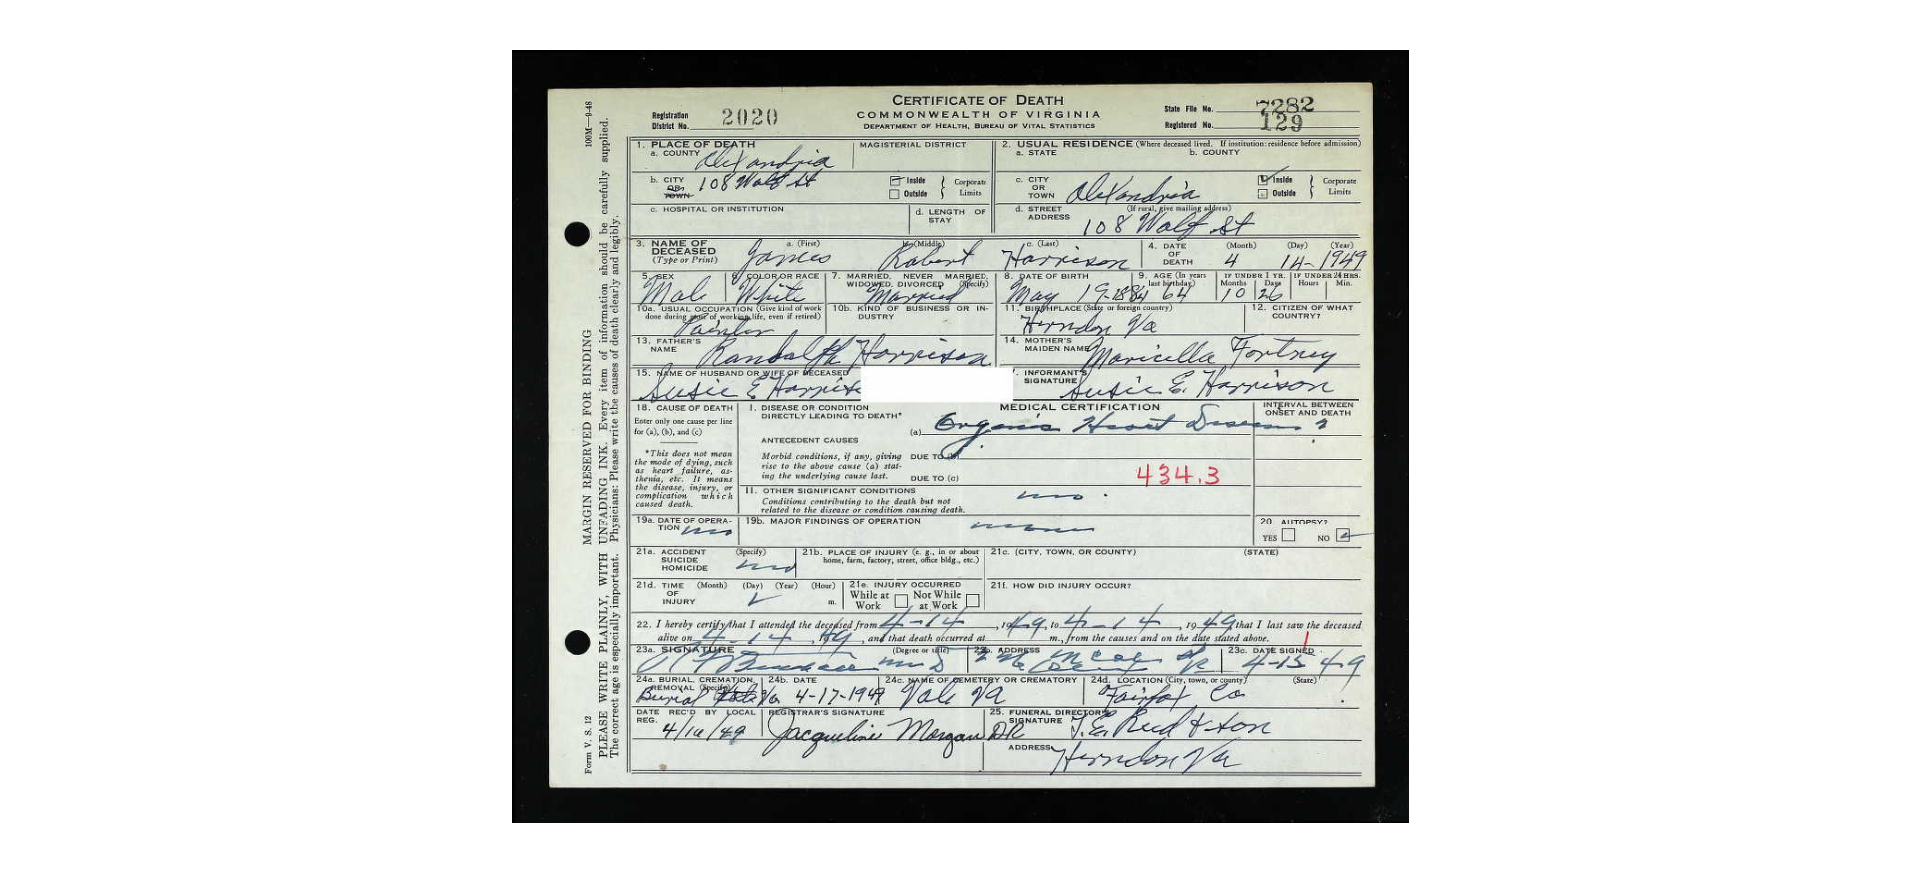 CERTIFICATE OF DEATH
COMMONWEALTH OF VIRGINIA
DEPARTMENT OF HEALTH, BUREAU OF VITAL STATISTICS
Registration District No. 2020
State File No. 7282
Registered No. 129
1. PLACE OF DEATH
a. COUNTY Alexandria
MAGISTERIAL DISTRICT
2. USUAL RESIDENCE (Where deceased lived. If institution: residence before admission)
a. STATE b. COUNTY
b. CITY OR TOWN 108 Wolf St
Inside Outside Corporate Limits
c. CITY OR TOWN Alexandria
Inside Outside Corporate Limits
c. HOSPITAL OR INSTITUTION
d. LENGTH OF STAY
d. STREET ADDRESS (If rural, give mailing address) 108 Wolf St
3. NAME OF DECEASED (Type or Print)
a. (First) James b. (Middle) Robert c. (Last) Harrison
4. DATE OF DEATH (Month) (Day) (Year) 4 14-1949
5. SEX Male
6. COLOR OR RACE White
7. MARRIED, NEVER MARRIED, WIDOWED, DIVORCED (Specify) Married
8. DATE OF BIRTH May 19-1884
9. AGE (In years last birthday) 64
IF UNDER 1 YR. Months 10 Days 26
IF UNDER 24 HRS. Hours Min.
10a. USUAL OCCUPATION (Give kind of work done during most of working life, even if retired) Painter
10b. KIND OF BUSINESS OR INDUSTRY
11. BIRTHPLACE (State or foreign country) Herndon Va
12. CITIZEN OF WHAT COUNTRY?
13. FATHER'S NAME Randolph Harrison
14. MOTHER'S MAIDEN NAME Maricella Fortney
15. NAME OF HUSBAND OR WIFE OF DECEASED Susie E
INFORMANT'S SIGNATURE Susie E. Harrison
18. CAUSE OF DEATH
Enter only one cause per line for (a), (b), and (c)
*This does not mean the mode of dying, such as heart failure, asthenia, etc. It means the disease, injury, or complication which caused death.
MEDICAL CERTIFICATION
I. DISEASE OR CONDITION DIRECTLY LEADING TO DEATH*
(a) Organic Heart Disease
INTERVAL BETWEEN ONSET AND DEATH ?
ANTECEDENT CAUSES
Morbid conditions, if any, giving rise to the above cause (a) stating the underlying cause last.
DUE TO (b)
DUE TO (c)
434.3
II. OTHER SIGNIFICANT CONDITIONS
Conditions contributing to the death but not related to the disease or condition causing death.
no
19a. DATE OF OPERATION no
19b. MAJOR FINDINGS OF OPERATION none
20. AUTOPSY? YES NO
21a. ACCIDENT SUICIDE HOMICIDE (Specify) no
21b. PLACE OF INJURY (e. g., in or about home, farm, factory, street, office bldg., etc.)
21c. (CITY, TOWN, OR COUNTY) (STATE)
21d. TIME OF INJURY (Month) (Day) (Year) (Hour) m.
21e. INJURY OCCURRED While at Work Not While at Work
21f. HOW DID INJURY OCCUR?
22. I hereby certify that I attended the deceased from 4-14, 1949, to 4-14, 1949 that I last saw the deceased
alive on 4-14, 1949, and that death occurred at m., from the causes and on the date stated above.
23a. SIGNATURE (Degree or title) MD
23b. ADDRESS
23c. DATE SIGNED 4-15 49
24a. BURIAL, CREMATION, REMOVAL (Specify) Burial
24b. DATE 4-17-1949
24c. NAME OF CEMETERY OR CREMATORY Vale Va
24d. LOCATION (City, town, or county) (State) Fairfax Co
DATE REC'D BY LOCAL REG.
REGISTRAR'S SIGNATURE Jacqueline Morgan DR
25. FUNERAL DIRECTOR'S SIGNATURE T. E. Reed & Son
ADDRESS Herndon Va
100M—9-48
MARGIN RESERVED FOR BINDING
PLEASE WRITE PLAINLY, WITH UNFADING INK. Every item of information should be carefully supplied.
The correct age is especially important. Physicians: Please write the causes of death clearly and legibly.
Form V. S. 12